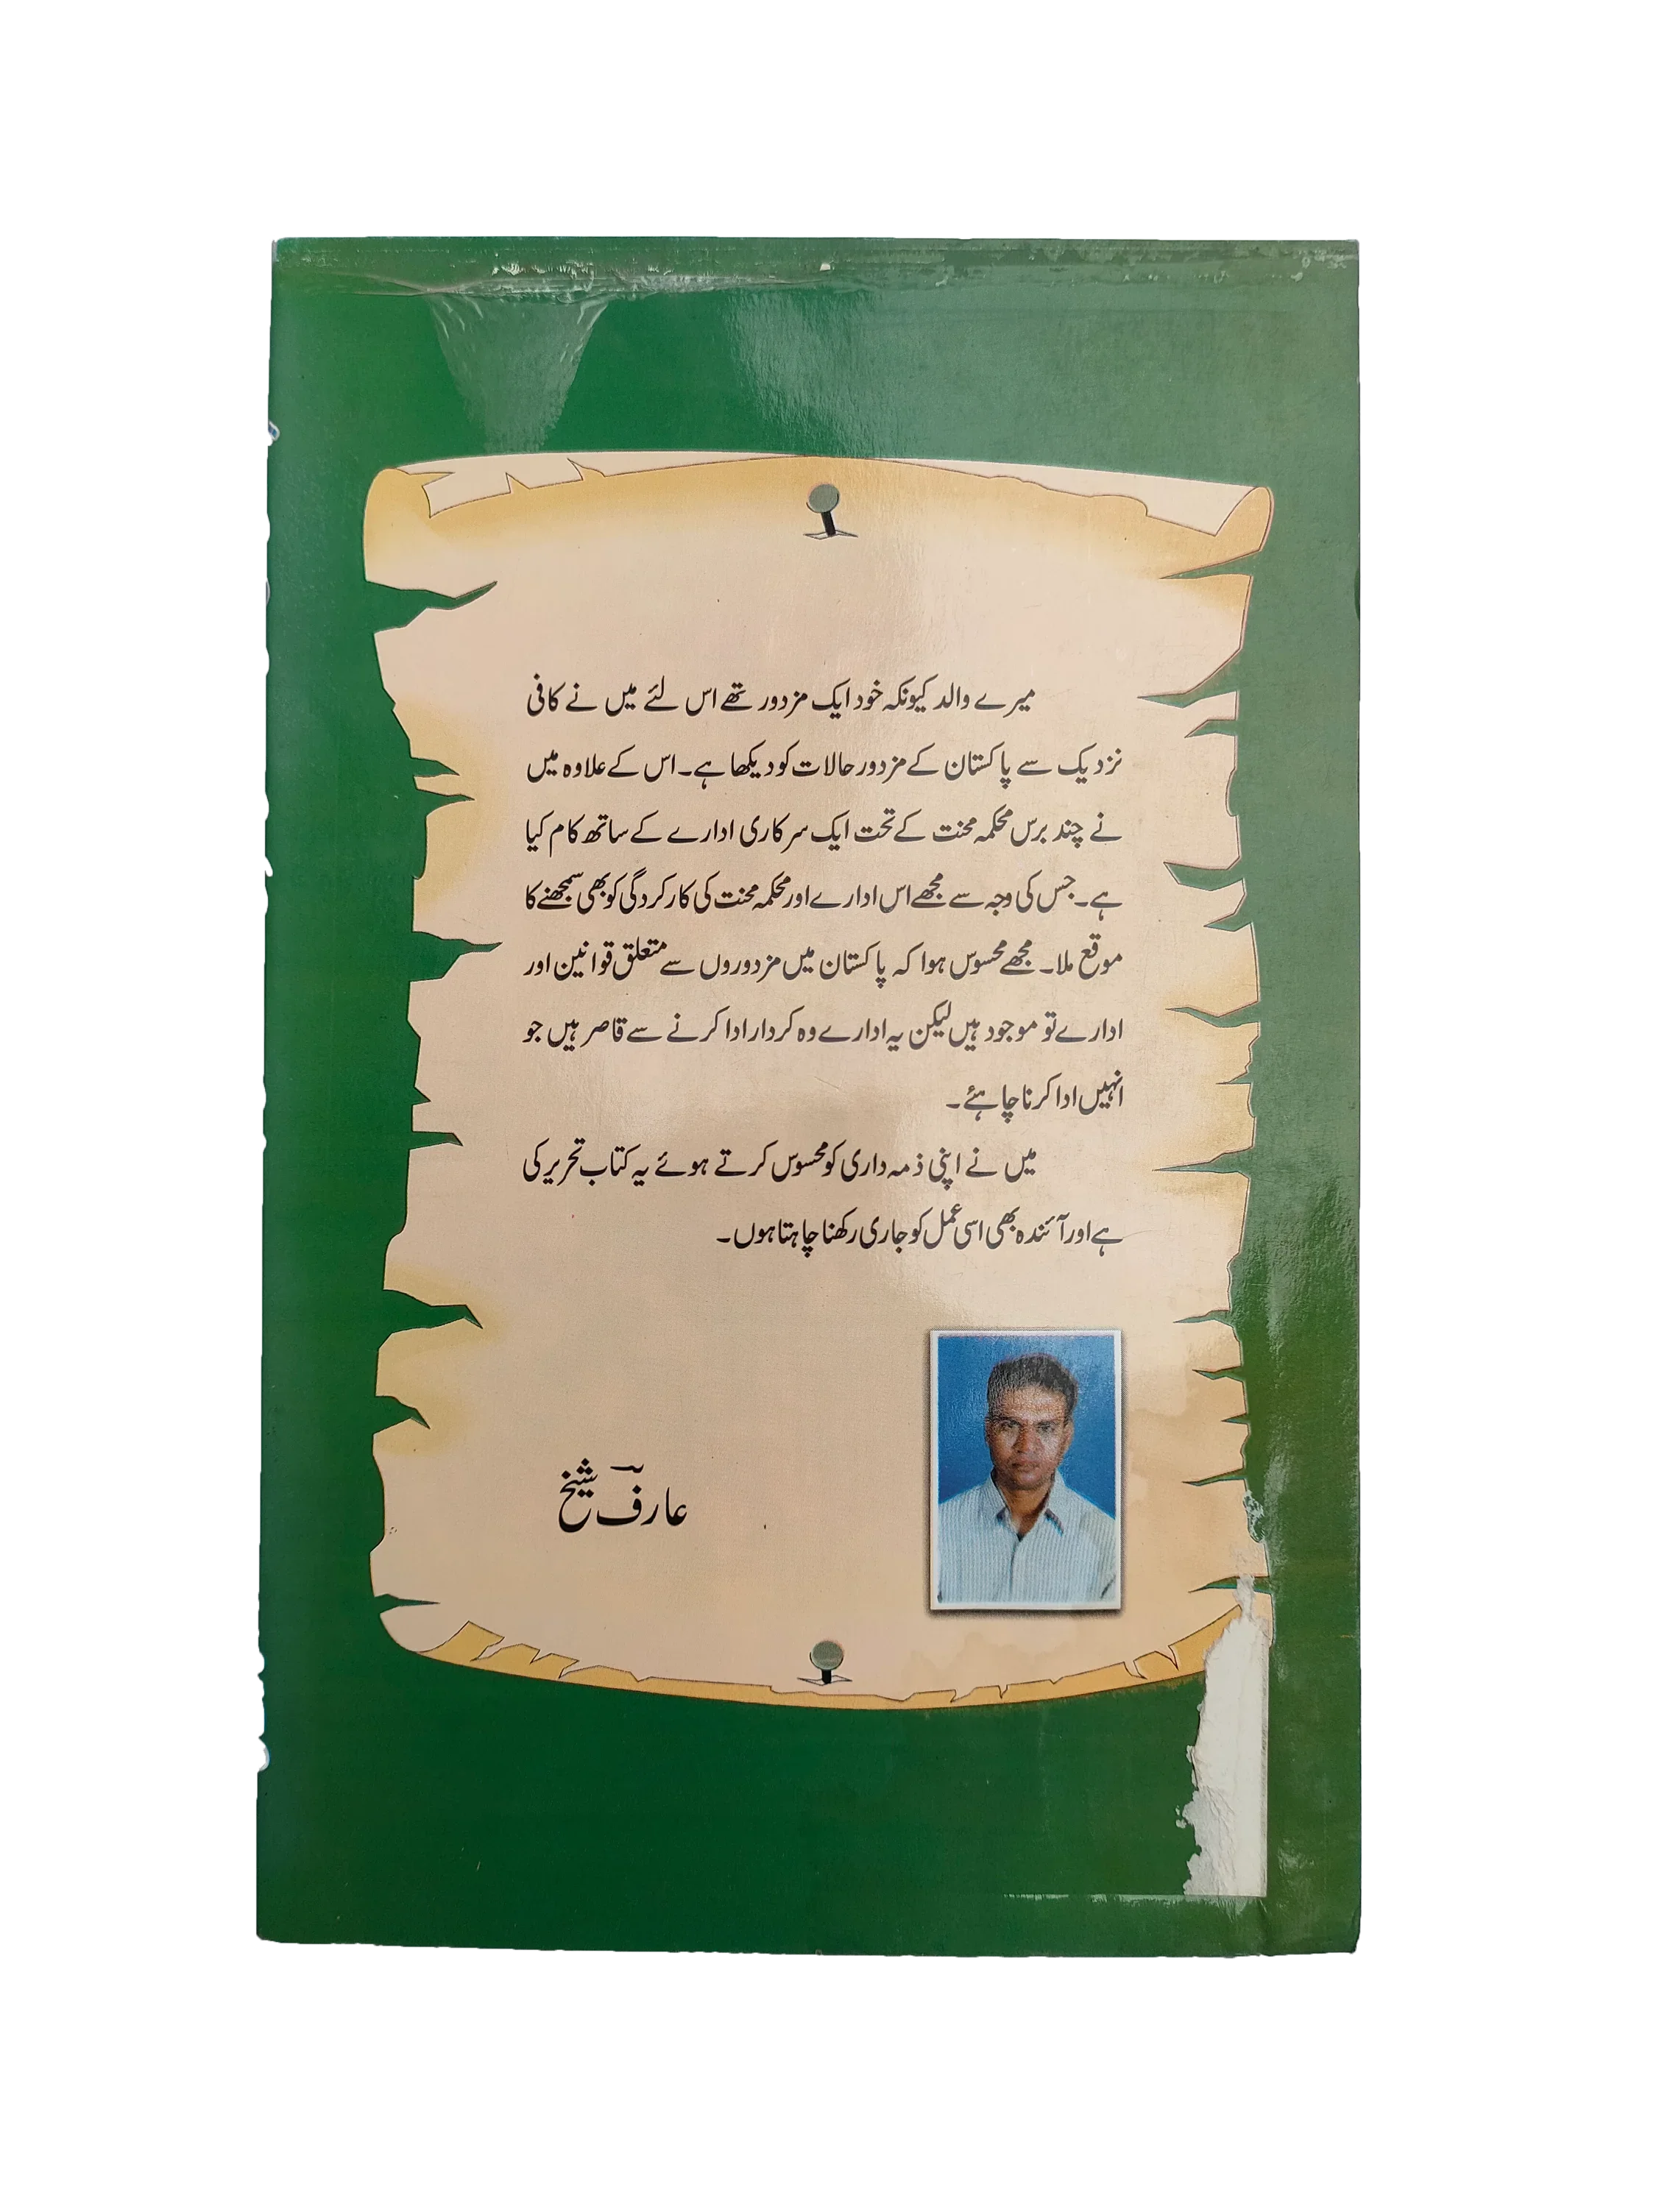 میرے والد کیونکہ خود ایک مزدور تھے اس لئے میں نے کافی
نزدیک سے پاکستان کے مزدور حالات کو دیکھا ہے۔ اس کے علاوہ میں
نے چند برس محکمہ محنت کے تحت ایک سرکاری ادارے کے ساتھ کام کیا
ہے۔ جس کی وجہ سے مجھے اس ادارے اور محکمہ محنت کی کارکردگی کو بھی سمجھنے کا
موقع ملا۔ مجھے محسوس ہوا کہ پاکستان میں مزدوروں سے متعلق قوانین اور
ادارے تو موجود ہیں لیکن یہ ادارے وہ کردار ادا کرنے سے قاصر ہیں جو
انہیں ادا کرنا چاہئے۔
میں نے اپنی ذمہ داری کو محسوس کرتے ہوئے یہ کتاب تحریر کی
ہے اور آئندہ بھی اسی عمل کو جاری رکھنا چاہتا ہوں۔
عارفؔ شیخ